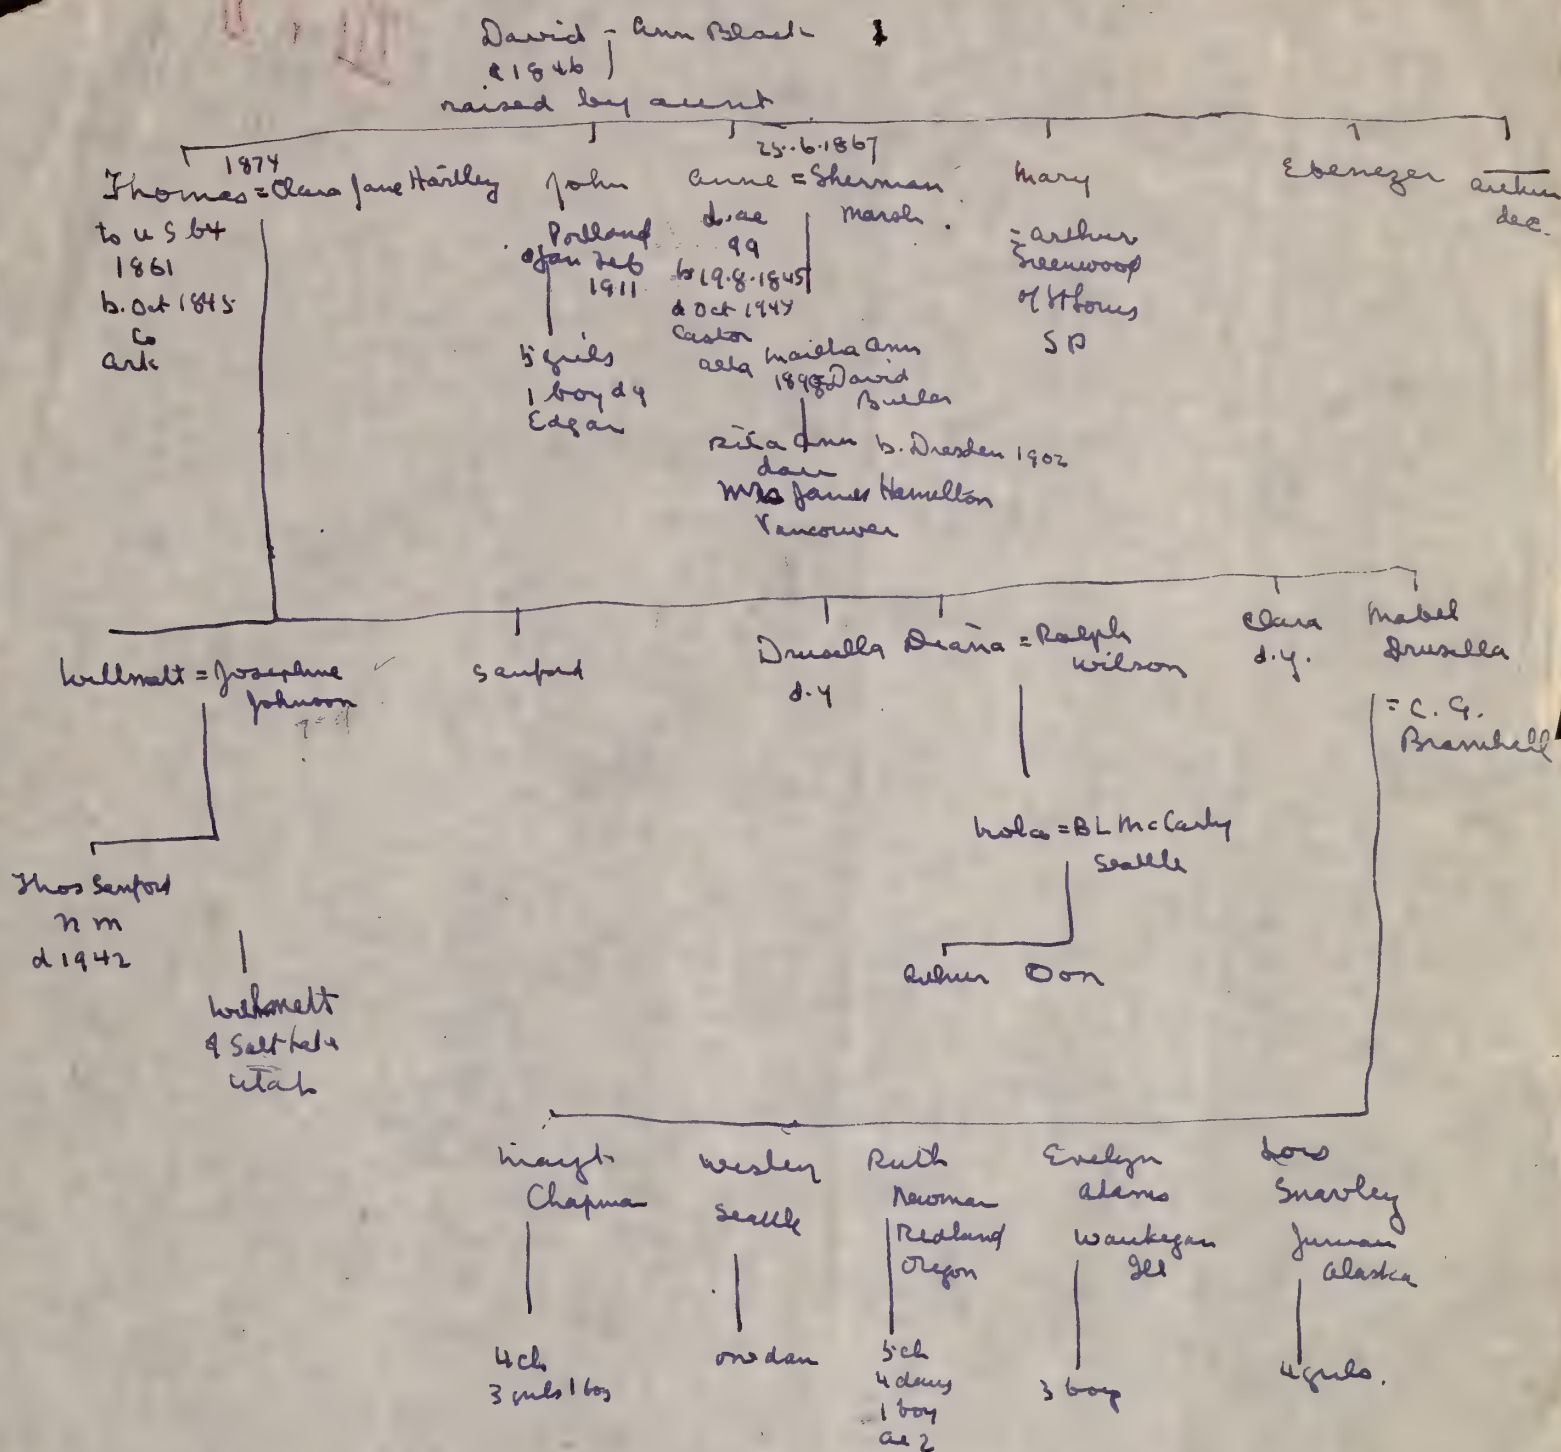 David - Ann Black
1846
raised by aunt
1874
Thomas = Clara Jane Hartley
to U S by
1861
b. Oct 1845
Co
Ark
John
Portland
Jan Feb
1911
5 girls
1 boy d y
Edgar
25.6.1867
Anne = Sherman
Marsh.
d. ae
99
b 19.8.1845
d Oct 1947
Castor
Alta
Martha Ann
David
Butler
Rita Ann b. Dresden 1902
dau
Mrs James Hamilton
Vancouver
Mary
= Arthur
Greenwood
of St Louis
S P
Ebenezer
Arthur
dec.
Willmott = Josephine
Johnson
Sanford
Drusella
d.y
Diana = Ralph
Wilson
Clara
d.y.
Mabel
Drusella
= C. G.
Bramhall
Thos Sanford
n m
d 1942
Willmott
Salt Lake
Utah
Nola = B L McCarty
Seattle
Arthur Don
Margt
Chapman
4 ch
3 girls 1 boy
Wesley
Seattle
one dau
Ruth
Newman
Redland
Oregon
5 ch
4 daus
1 boy
ae 2
Evelyn
Adams
Waukegan
Ill
3 boys
Lois
Snavley
Juneau
Alaska
4 girls.